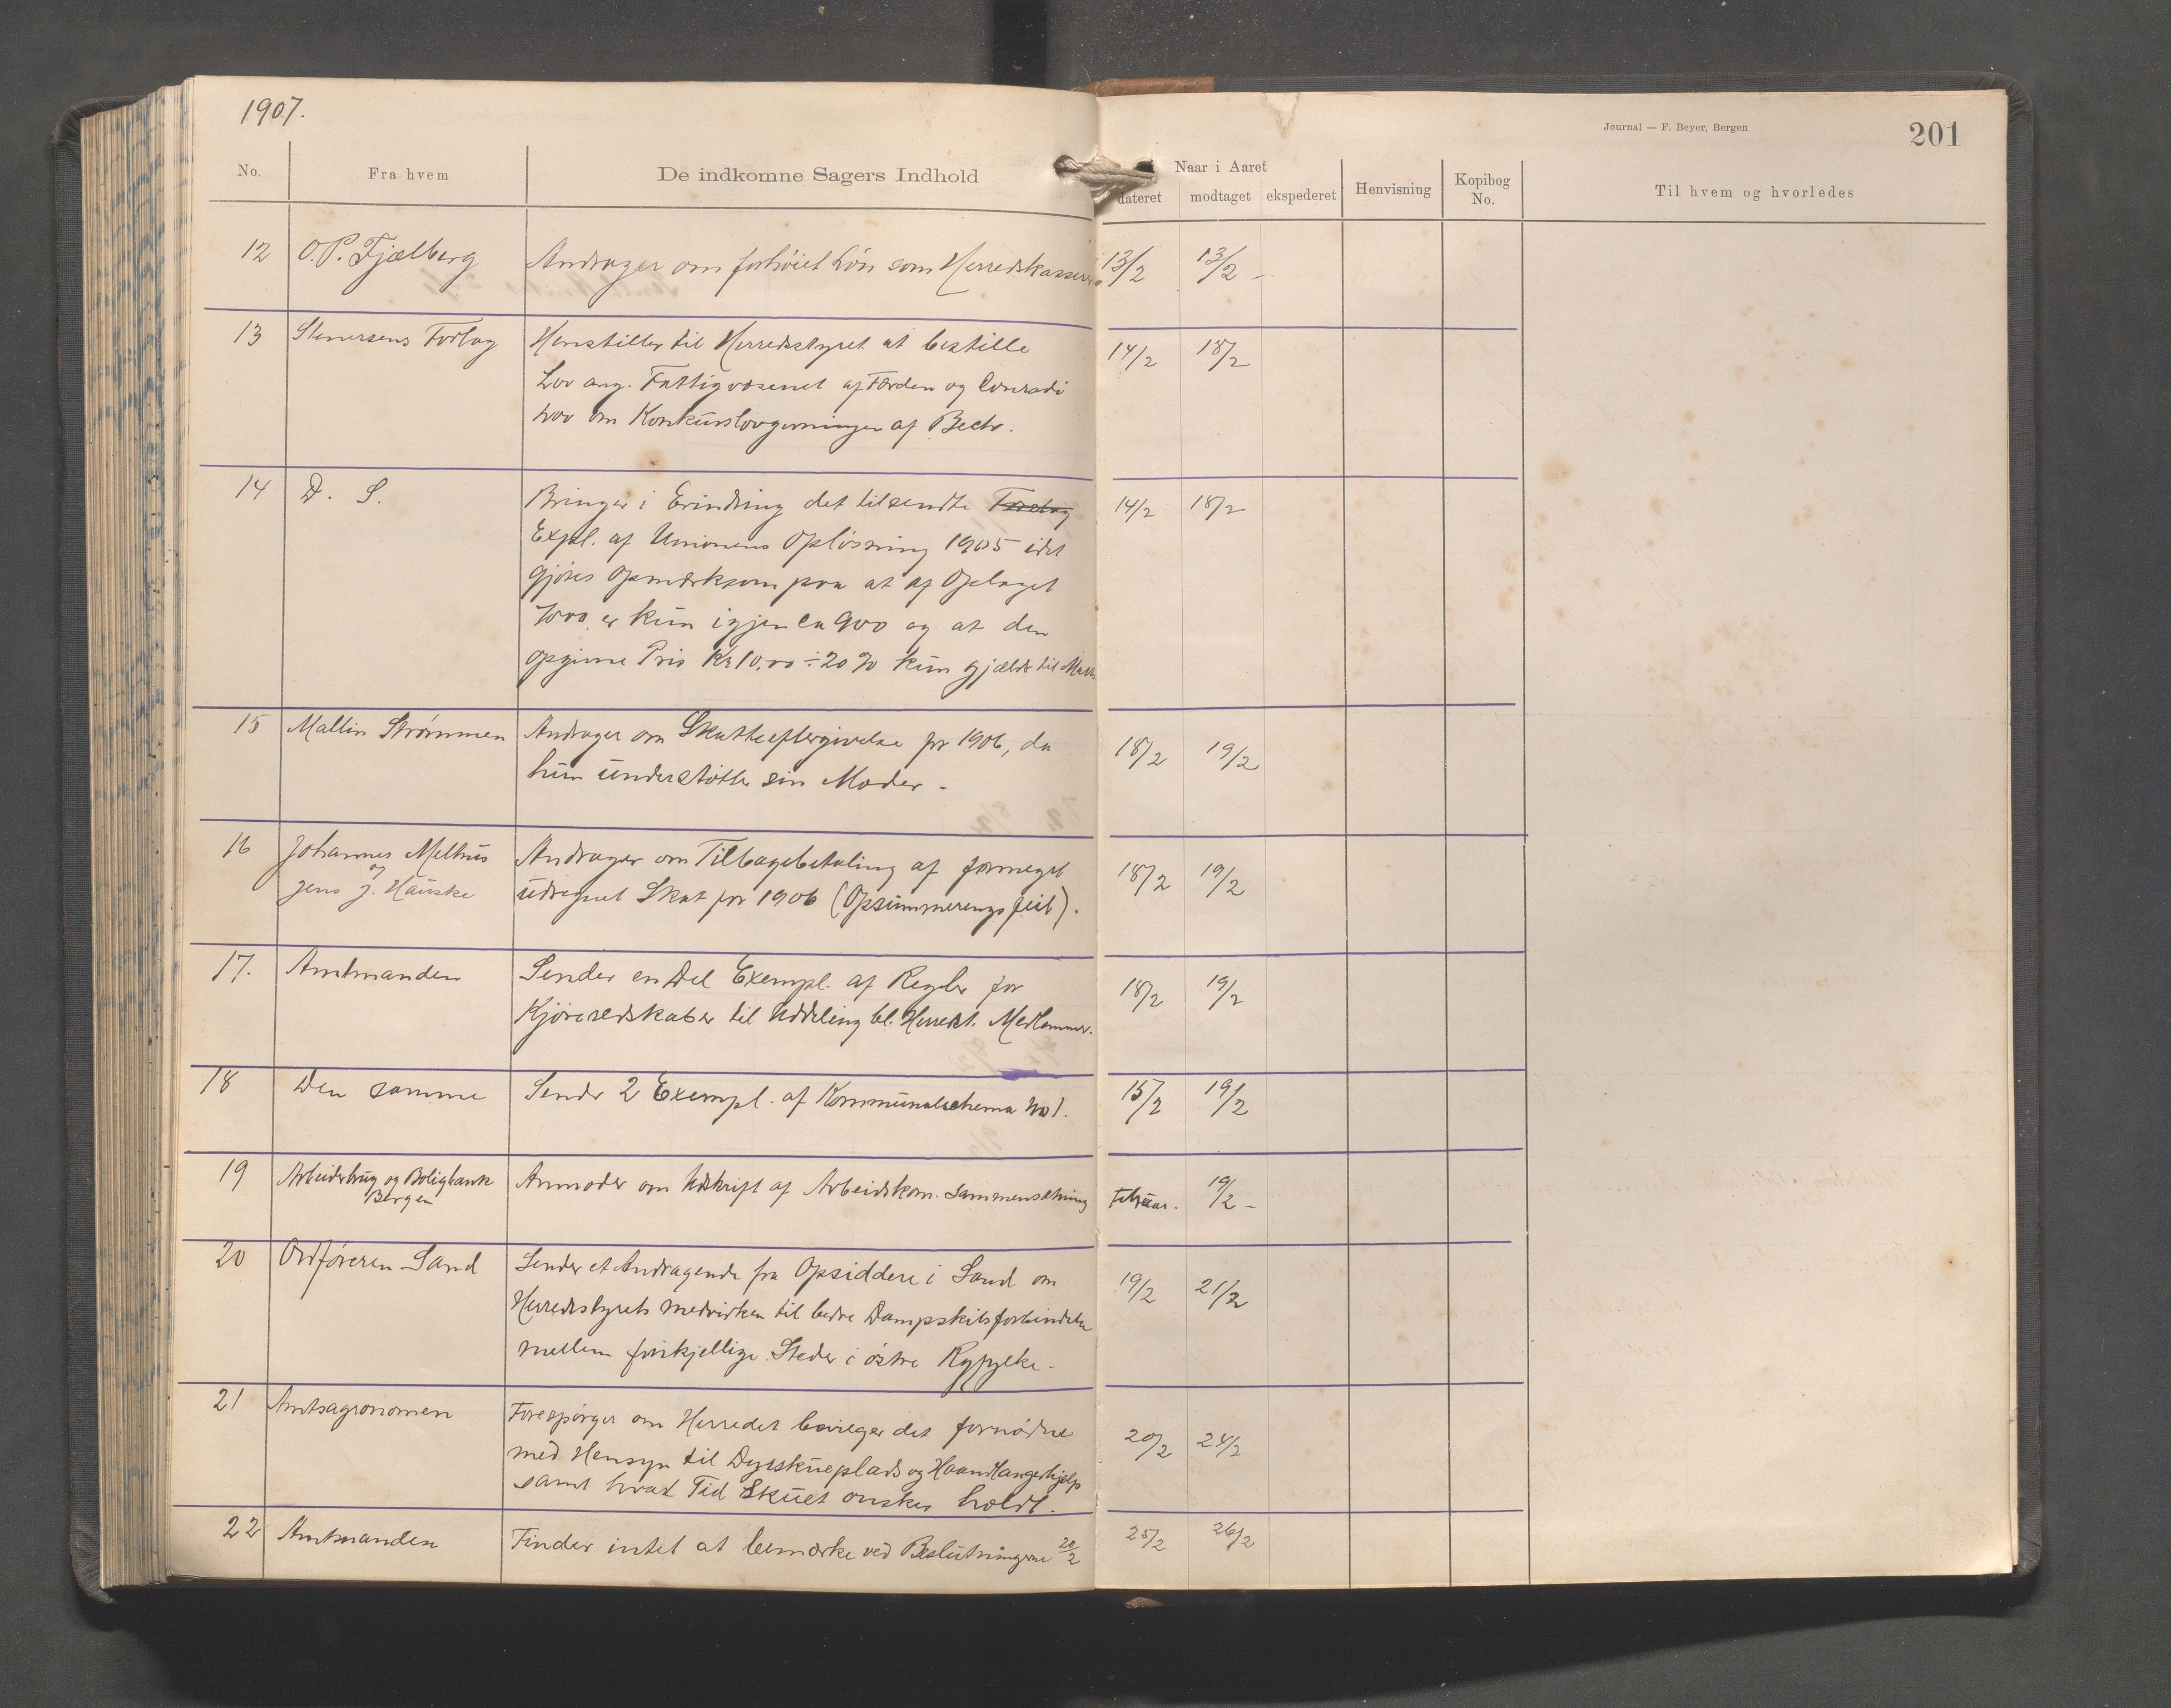 1907.
Journal — F. Beyer, Bergen
201
No.
Fra hvem
De indkomne Sagers Indhold
Naar i Aaret
dateret
modtaget
ekspederet
Henvisning
Kopibog
No.
Til hvem og hvorledes
12 O. P. Fjælberg Andrager om forhøiet Løn som Herredskasserer 13/2 13/2 -
13 Stenersens Forlag Henstiller til Herredsstyret at bestille 14/2 18/2
Lov ang. Fattigvæsenet af Færden og Conradi
Lov om Konkurslovgivningen af Bech.
14 D. S. Bringer i Erindring det tilsendte Forslag 14/2 18/2
Expl. af Unionens Opløsning 1905 idet
gjøres opmærksom paa at af Oplaget
7000 er kun igjen ca 900 og at den
opgivne Pris Kr 10,00 ÷ 20 % kun gjælder til
15 Mallin Strømmen Andrager om Skatteeftergivelse for 1906, da 18/2 19/2
hun understøtter sin Moder -
16 Johannes Melhus Andrager om Tilbagebetaling af formeget 18/2 19/2
og
Jens J. Hauske udregnet Skat for 1906 (Opsummeringsfeil).
17. Amtmanden Sender en Del Exempl. af Regler for 18/2 19/2
Kjøreredskaber til Uddeling bl. Herredst. Medlemmer.
18 Den samme Sender 2 Exempl. af Kommunalschema No 1. 15/2 19/2
19 Arbeiderbrug og Boligbank Anmoder om Udskrift af Arbeidskom. Sammensætning Februar. 19/2 -
Bergen
20 Ordføreren Sand Sender et Andragende fra Opsiddere i Sand om 19/2 21/2
Herredsstyrets Medvirken til bedre Dampskibsforbindelse
mellem forskjellige Steder i østre Ryfylke -
21 Amtsagronomen Forespørger om Herredet bevilger det fornødne 20/2 24/2
med Hensyn til Dyrskueplads og Haandlangerhjelp
samt hvad Tid Skuet ønskes holdt.
22 Amtmanden Finder intet at bemærke ved Beslutningerne 20/2 25/2 26/2